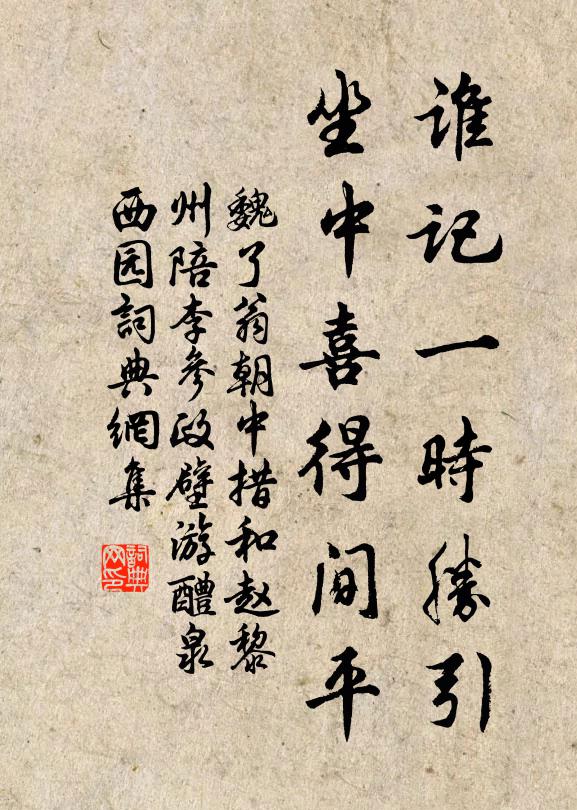 谁记一時勝引
坐中喜得间平
魏了翁朝中措和赵黎
州陪李參政壁游醴泉
西园詞典網集
詞典
网印